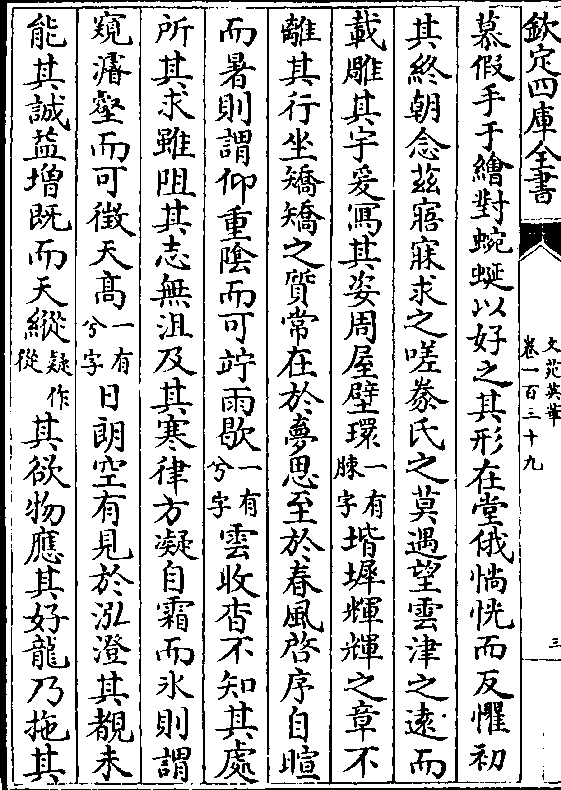 欽定四庫全書
文苑英華
卷一百三十九
三
慕假手于繪對蜿蜒以好之其形在堂俄惝恍而反懼初
其終朝念茲寤寐求之嗟豢氏之莫遇望雲津之遠而
載雕其宇爰寫其姿周屋壁環一有腖字堦墀輝輝之章不
離其行坐矯矯之質常在於夢思至於春風啓序自暄
而暑則謂仰重陰而可竚雨歇一有兮字雲收杳不知其處
所其求雖阻其志無沮及其寒律方凝自霜而氷則謂
窺濬壑而可徴天髙一有兮字日朗空有見於泓澄其覩未
能其誠益増既而天縱疑作從其欲物應其好龍乃拖其